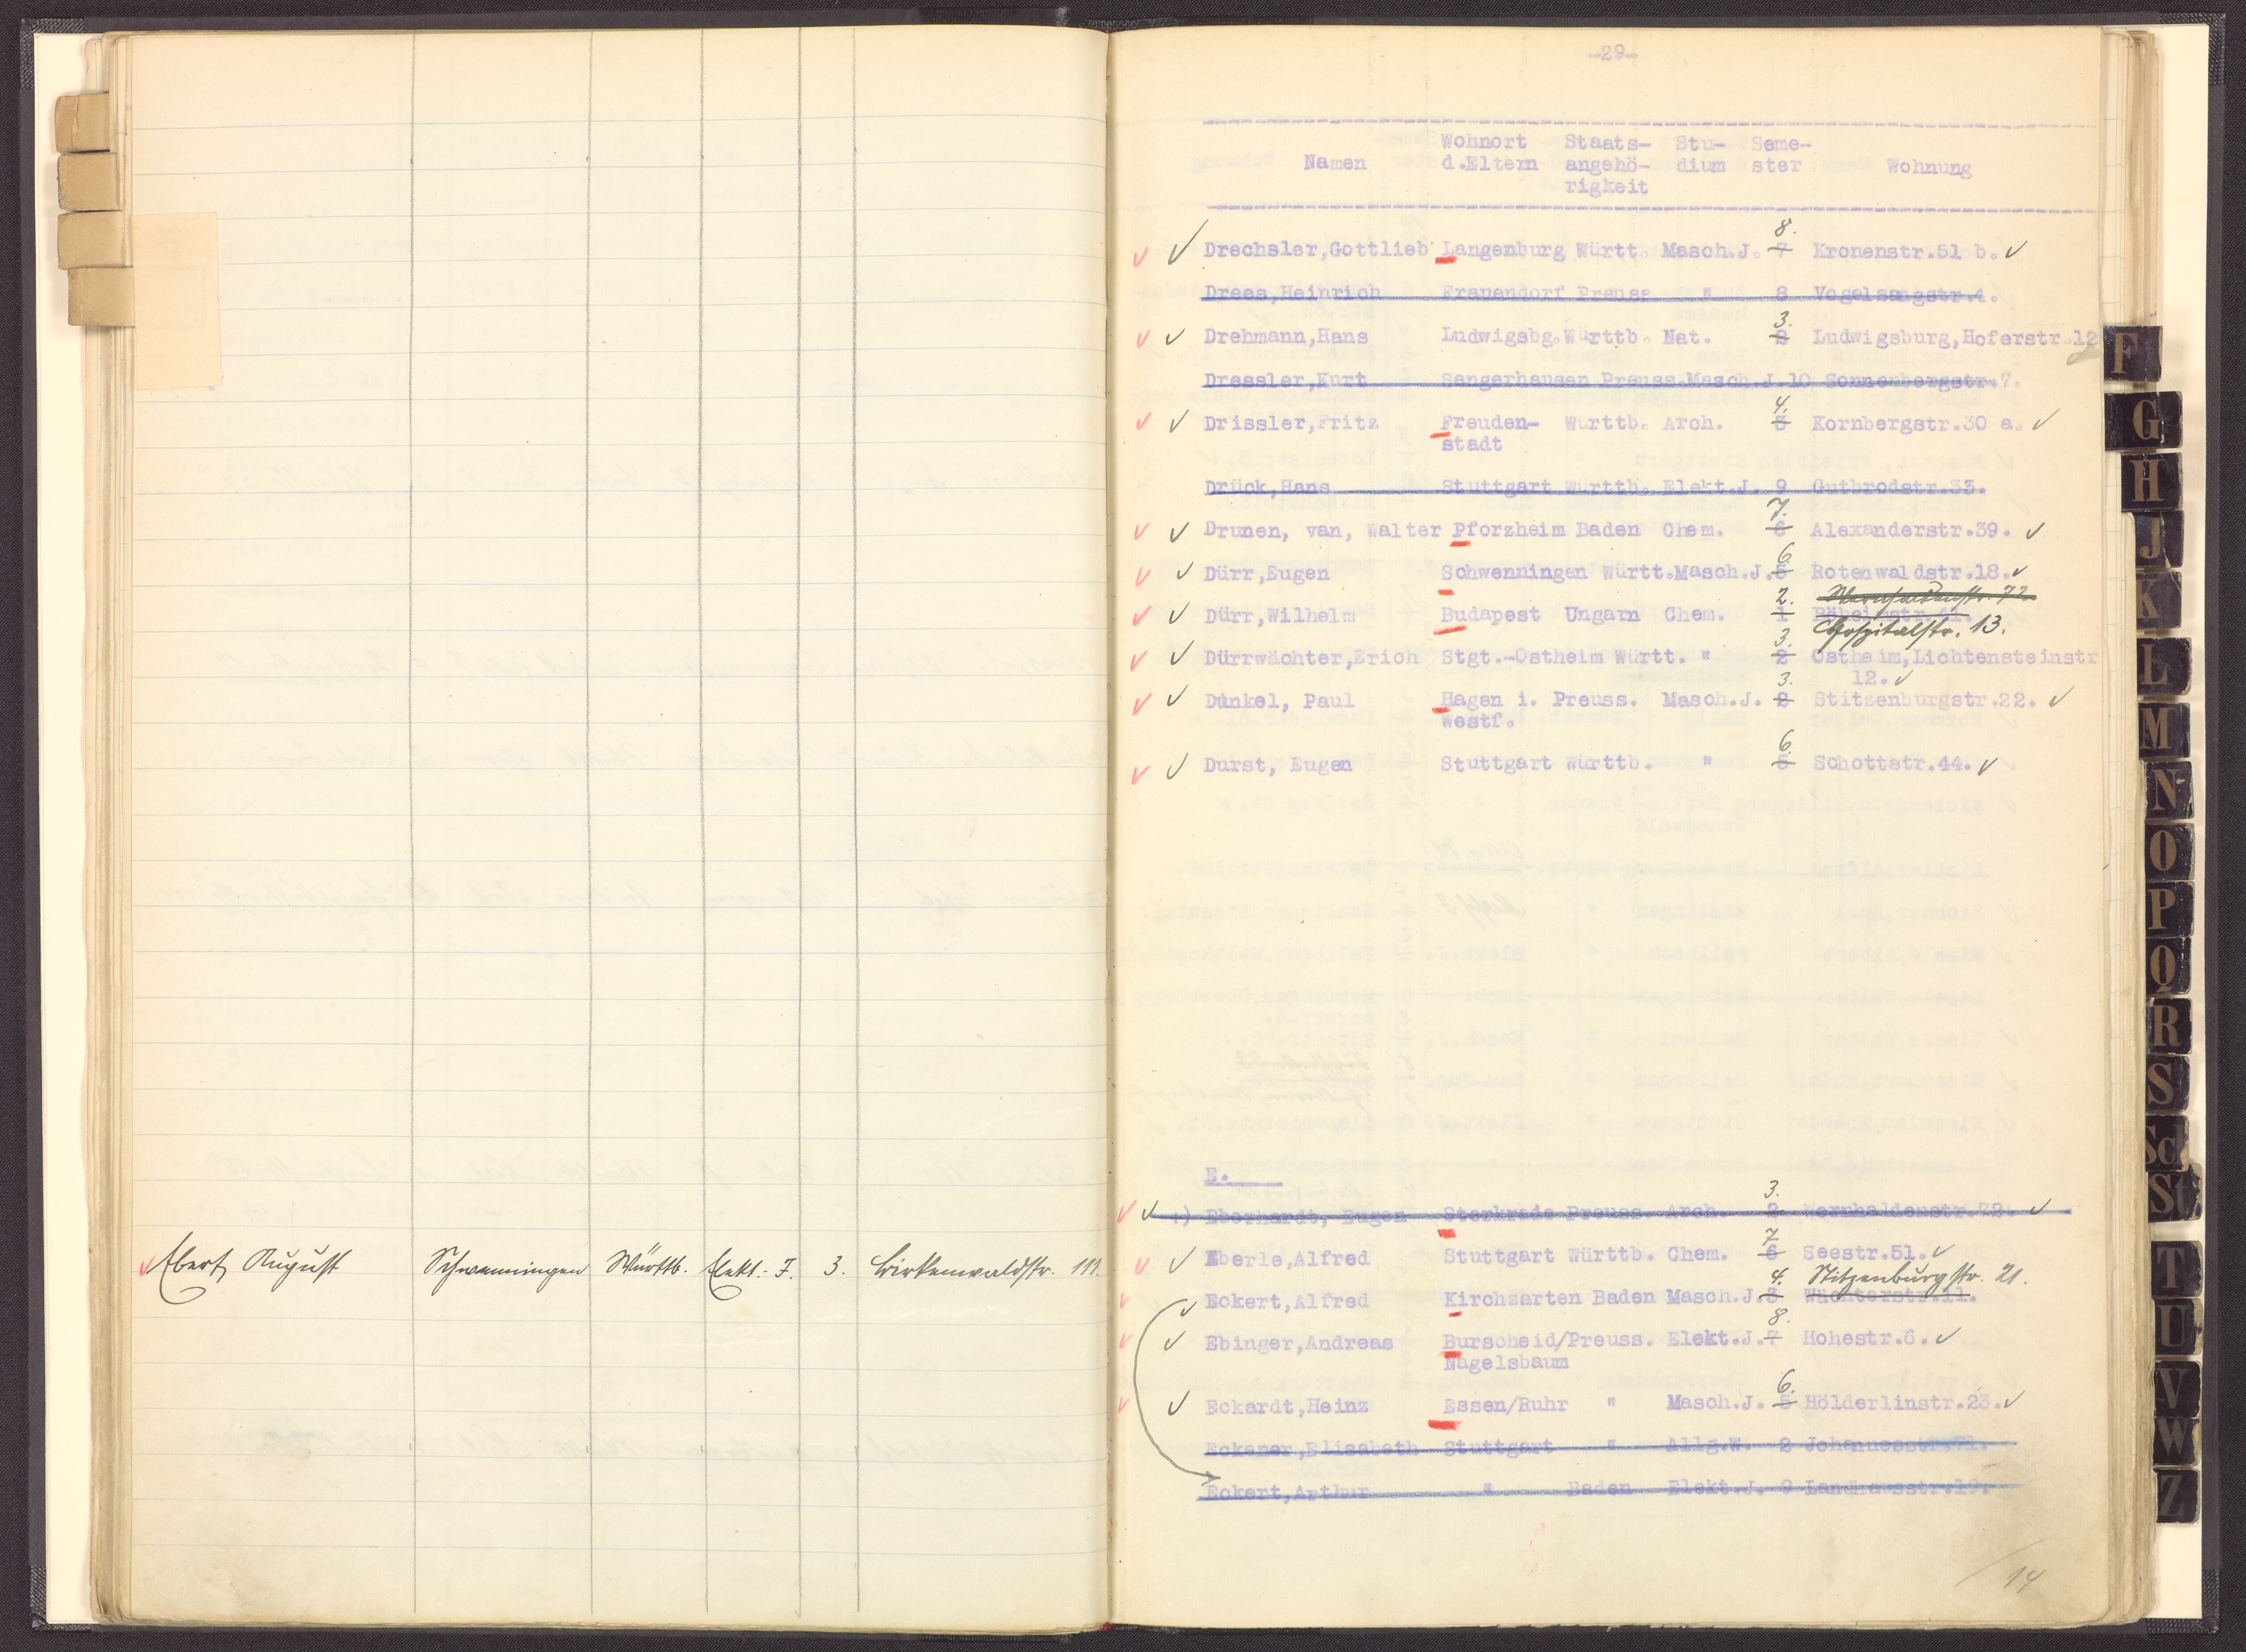 Ebert, August Schwenningen Württb. Elekt.-J. 3. Birkenwaldstr. 111.
-29-
Namen Wohnort d.Eltern Staats- angehö- rigkeit Stu- dium Seme- ster Wohnung
8.
Drechsler,Gottlieb Langenburg Württ. Masch.J. 7 Kronenstr.51 b.
Drees,Heinrich Frauendorf Preuss " 8 Vogelsangstr.4.
3.
Drehmann,Hans Ludwigsbg.Württb. Nat. 2 Ludwigsburg,Hoferstr.12
Dressler,Kurt Sangerhausen Preuss.Masch.J.10 Sonnenbergstr.7.
4.
Drissler,Fritz Freuden- Württb. Arch. 3 Kornbergstr.30 a.
stadt
Drück,Hans Stuttgart Württb. Elekt.J. 9 Gutbrodstr.33.
7.
Drunen, van, Walter Pforzheim Baden Chem. 6 Alexanderstr.39.
6.
Dürr,Eugen Schwenningen Württ.Masch.J.5 Rotenwaldstr.18.
2. Wernhaldenstr. 72
Dürr,Wilhelm Budapest Ungarn Chem. 1
Hospitalstr. 13.
3.
Dürrwächter,Erich Stgt.-Ostheim Württ. " 2 Ostheim,Lichtensteinstr
12.
3.
Dunkel, Paul Hagen i. Preuss. Masch.J. 2 Stitzenburgstr.22.
Westf.
6.
Durst, Eugen Stuttgart Württb. " 5 Schottstr.44.
E.
3.
Eberhardt, Eugen Sterkrade Preuss. Arch. 2 Wernhaldenstr.72.
7
Eberle,Alfred Stuttgart Württb. Chem. 6 Seestr.51.
4. Stitzenburgstr. 21.
Eckert,Alfred Kirchzarten Baden Masch.J.3 Wächterstr.11.
8.
Ebinger,Andreas Burscheid/Preuss. Elekt.J.7 Hohestr.6.
Nagelsbaum
6.
Eckardt,Heinz Essen/Ruhr " Masch.J. 5 Hölderlinstr.23.
Eckener,Elisabeth Stuttgart " Allg.W. 2 Johannesstr.71.
Eckert,Arthur " Baden Elekt.J. 9 Landhausstr.19.
14
F
G
H
J
K
L
M
N
O
P
Q
R
S
Sch
St
T
U
V
W
Z